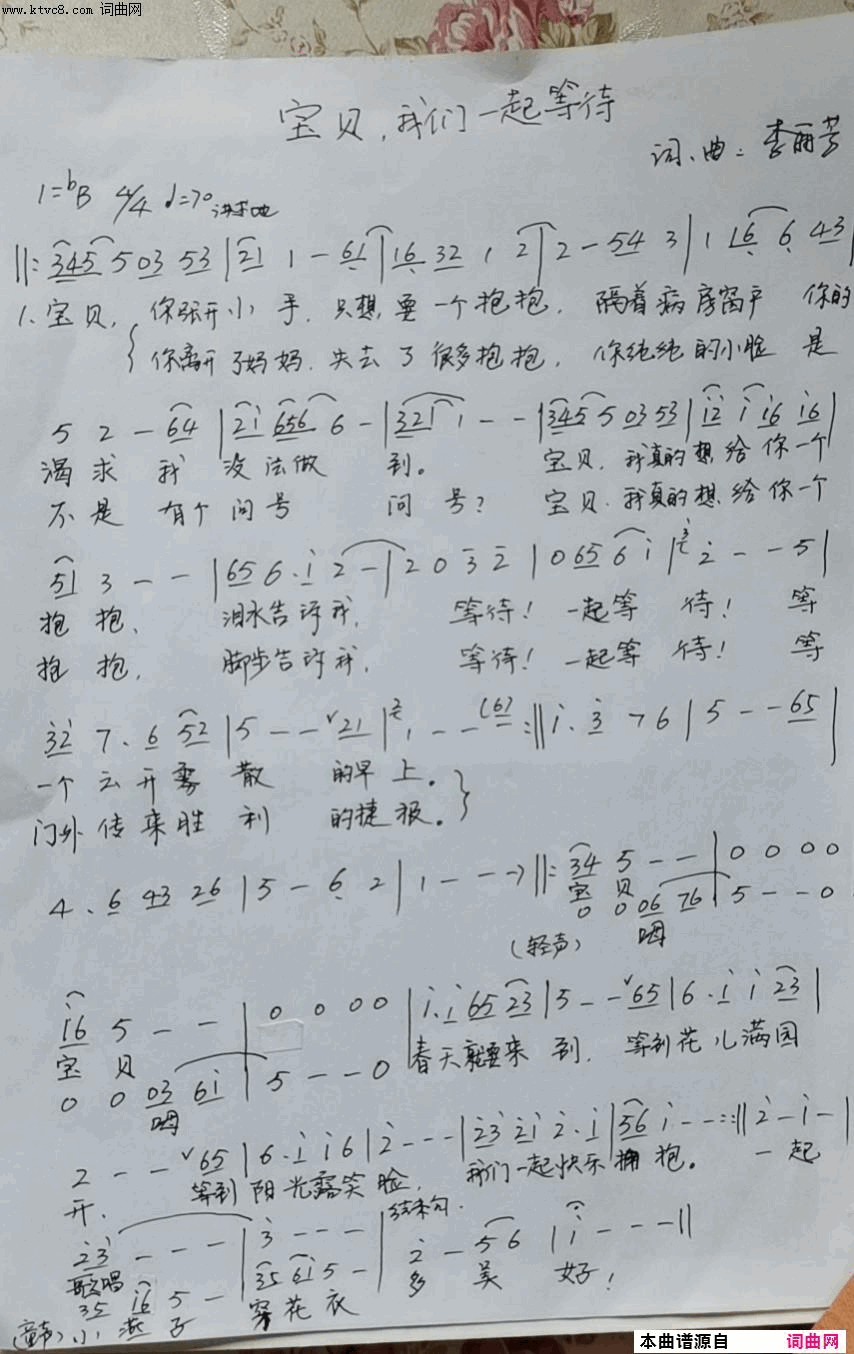 www.ktvc8.com 词曲网
宝贝，我们一起等待
词、曲：李丽芳
1=bB 4/4 ♩=70
‖: 345 5 03 53 | 21 1 - 61 | 16 32 1 2 | 2 - 54 3 | 1 16 6 43 |
1. 宝贝，你张开小手，只想要一个抱抱，隔着病房窗户 你的
你离开了妈妈，失去了很多抱抱，你纯纯的小脸 是
5 2 - 64 | 21 656 6 - | 321 1 - - | 345 5 03 53 | 12 1 16 16 |
渴求 我没法做到。 宝贝，我真的想给你一个
不是有个问号 问号？ 宝贝，我真的想给你一个
51 3 - - | 65 6·1 2 - | 2 0 3 2 | 0 65 6 1 | 2 - - 5 |
抱抱， 泪水告诉我， 等待！一起等待！ 等
抱抱， 脚步告诉我， 等待！一起等待！ 等
32 7·6 52 | 5 - - ˅21 | 1 - - (6) :‖ 1·3 7 6 | 5 - - 65 |
一个云开雾散 的早上。
门外传来胜利 的捷报。
4·6 43 26 | 5 - 6 2 | 1 - - - ‖: 34 5 - - | 0 0 0 0
宝贝
0 0 06 76 | 5 - - 0
(轻声) 嗯
16 5 - - | 0 0 0 0 | 1·1 65 23 | 5 - - ˅65 | 6·1 1 23 |
宝贝 春天就要来到， 等到花儿满园
0 0 03 61 | 5 - - 0
嗯
2 - - ˅65 | 6·1 1 6 | 2 - - - | 23 21 2·1 | 56 1 - - :‖ 2 - 1 - |
开， 等到阳光露笑脸， 我们一起快乐拥抱。 一起
结束句.
23 - - - | 3 - - - | 2 - 5 6 | 1 - - - ‖
歌唱 多美好！
35 16 5 - | 35 61 5 - |
(童声) 小燕子 穿花衣
本曲谱源自 词曲网